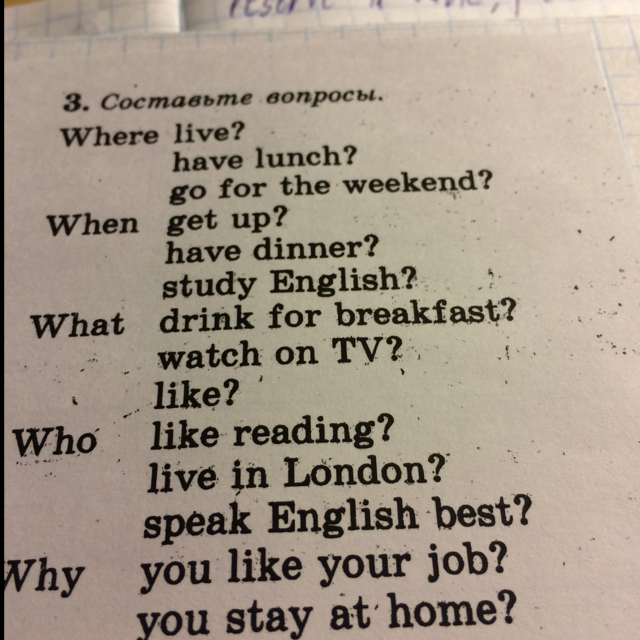 3. Составьте вопросы.
Where live?
have lunch?
go for the weekend?
When get up?
have dinner?
study English?
What drink for breakfast?
watch on TV?
like?
Who like reading?
live in London?
speak English best?
Why you like your job?
you stay at home?